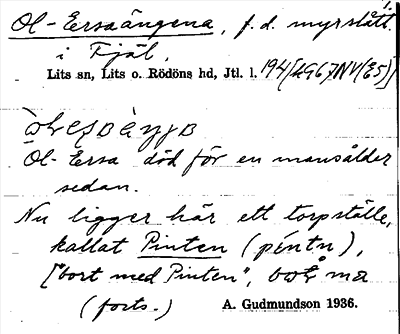 1.
Ol-Ersaängena, f.d. myrslått
i Fjäl.
Lits sn, Lits o. Rödöns hd, Jtl. l. 194/
Ol-Ersa död för en mansålder
sedan.
Nu ligger här ett torpställe,
kallat Pinten (péntn),
["bort med Pinten",
(forts.) A. Gudmundson 1936.